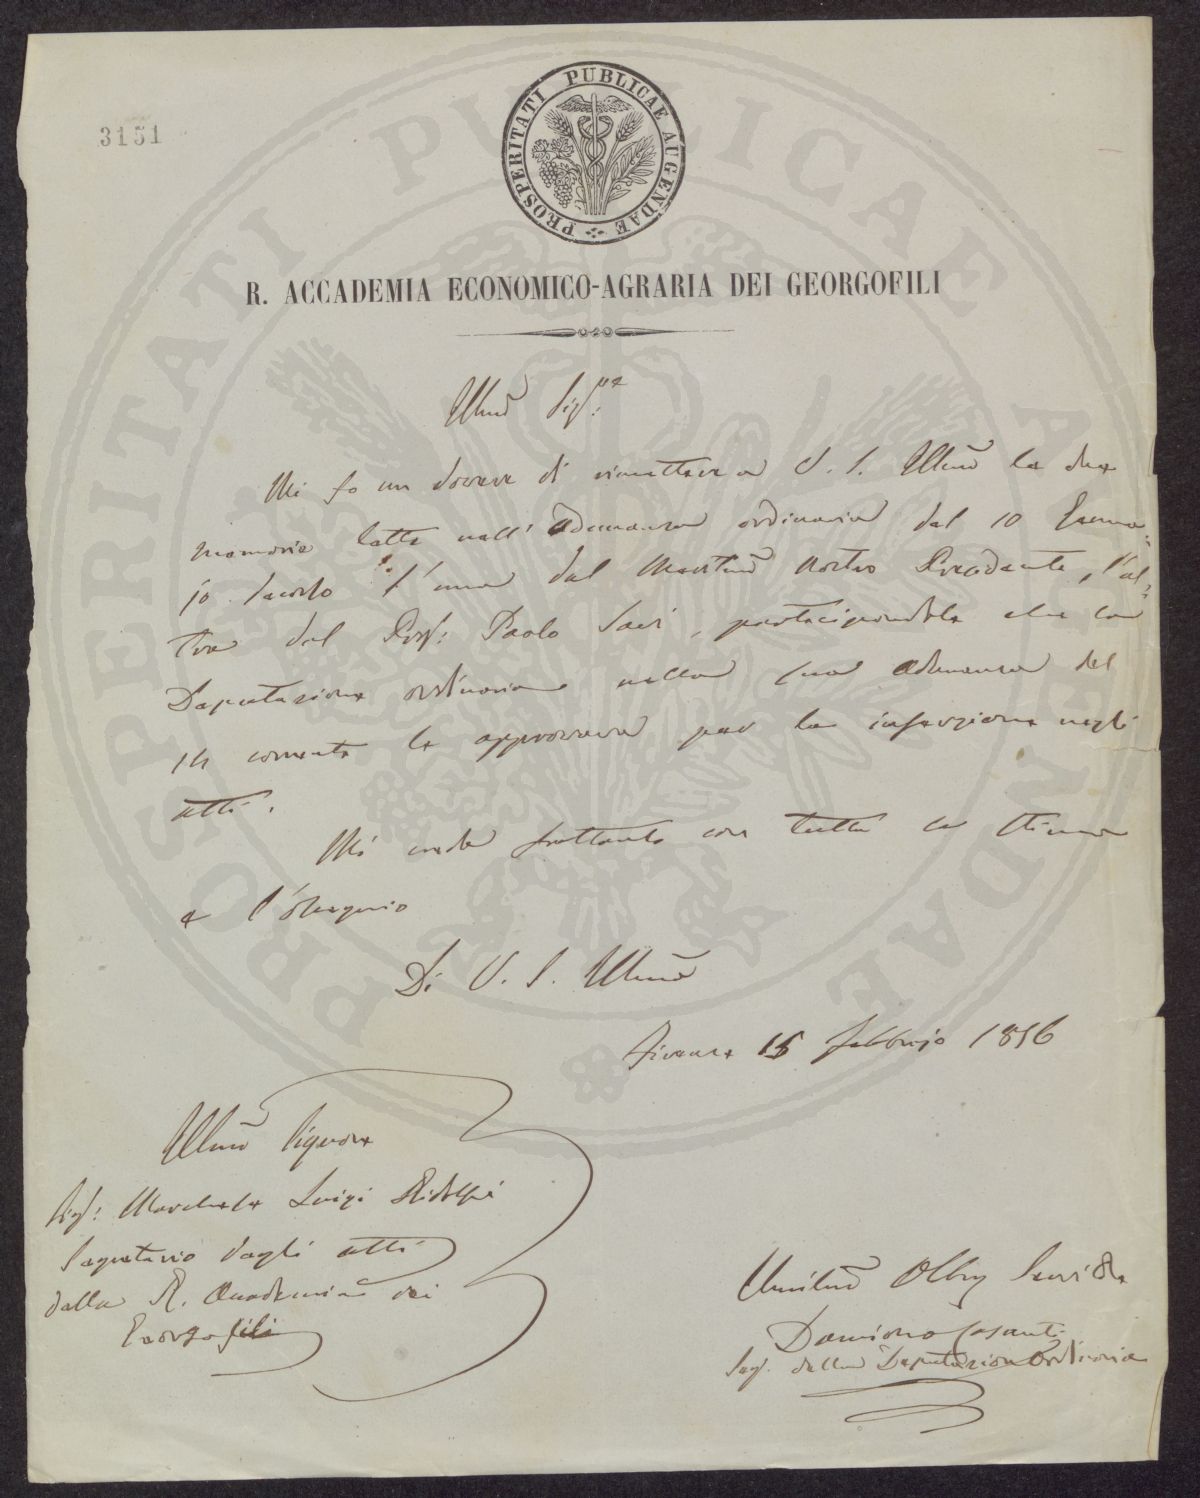 3151
PROSPERITATI PUBLICAE AUGENDAE
R. ACCADEMIA ECONOMICO-AGRARIA DEI GEORGOFILI
Illmo Sigre
Mi fo un dovere di rimettere a V. S. Illma le due
memorie lette nell' Adunanza ordinaria del 10 Genna-
jo l'una dal Meritmo nostro Presidente, l'al-
tra dal Prof: Paolo Savi, partecipandole che la
Deputazione ordinaria nella sua adunanza del
14 corrente le approvava per la inserzione negli
atti.
Mi creda frattanto con tutta la stima
e l'ossequio
Di V. S. Illma
Firenze 15 febbrajo 1856
Illmo Signore
Sig: Marchese Luigi Ridolfi
Segretario degli atti
della R. Accademia dei
Georgofili
Umilmo Obbmo Servitore
Damiano Casanti
Seg. della Deputazione Ordinaria